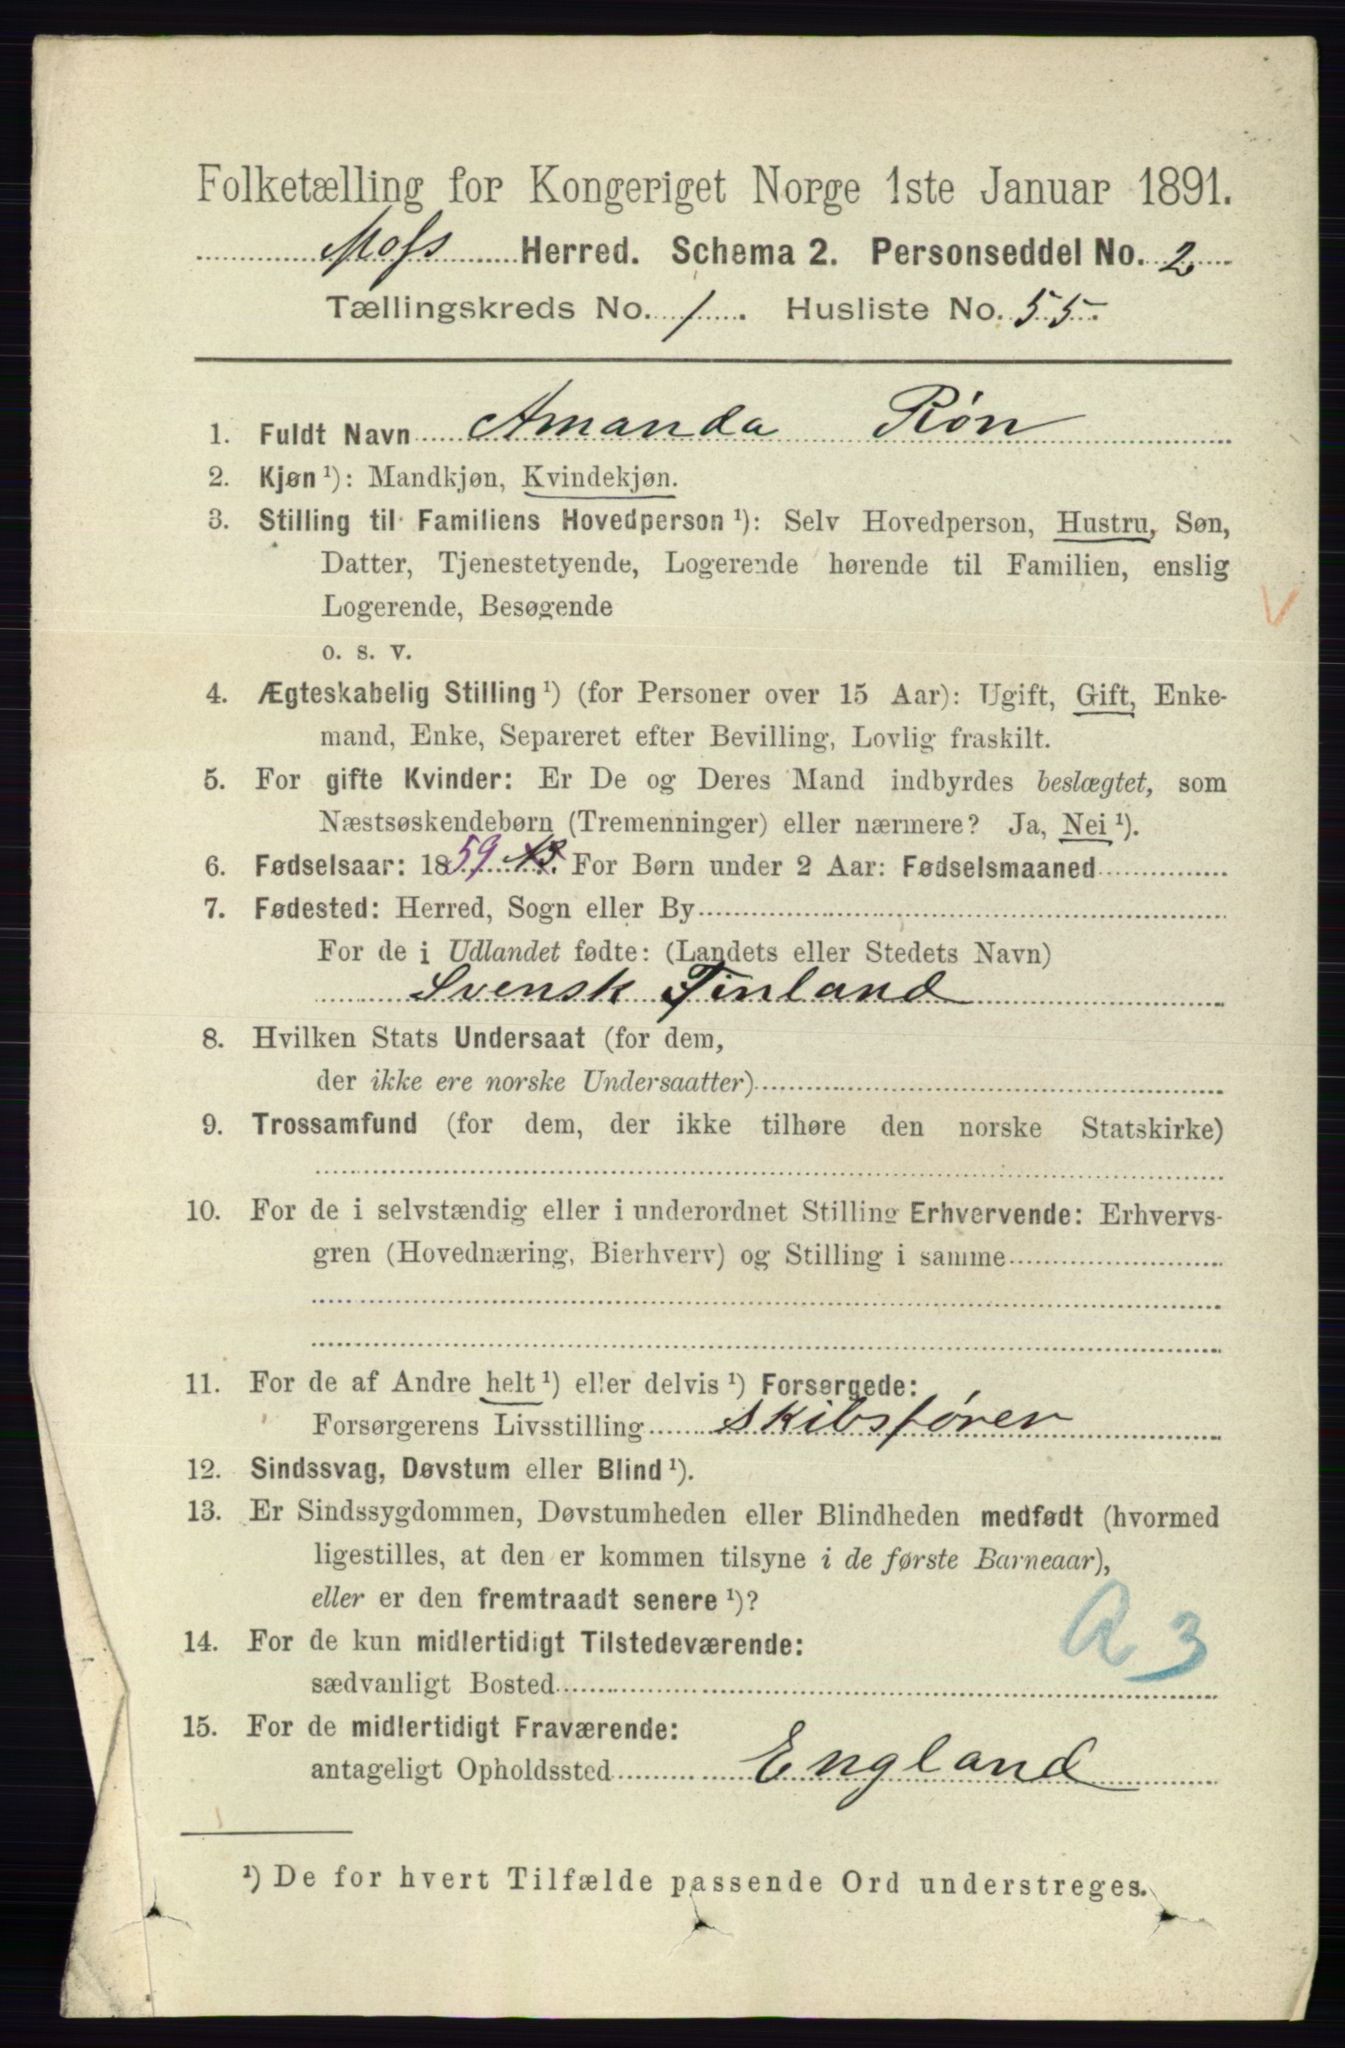 Folketælling for Kongeriget Norge 1ste Januar 1891.
Moss Herred. Schema 2. Personseddel No. 2
Tællingskreds No. 1. Husliste No. 55.
1. Fuldt Navn Amanda Røn
2. Kjøn ¹): Mandkjøn, Kvindekjøn.
3. Stilling til Familiens Hovedperson ¹): Selv Hovedperson, Hustru, Søn,
Datter, Tjenestetyende, Logerende hørende til Familien, enslig
Logerende, Besøgende
o. s. v.
4. Ægteskabelig Stilling ¹) (for Personer over 15 Aar): Ugift, Gift, Enke-
mand, Enke, Separeret efter Bevilling, Lovlig fraskilt.
5. For gifte Kvinder: Er De og Deres Mand indbyrdes beslægtet, som
Næstsøskendebørn (Tremenninger) eller nærmere? Ja, Nei ¹).
6. Fødselsaar: 1859. For Børn under 2 Aar: Fødselsmaaned
7. Fødested: Herred, Sogn eller By
For de i Udlandet fødte: (Landets eller Stedets Navn)
Svensk Finland
8. Hvilken Stats Undersaat (for dem,
der ikke ere norske Undersaatter)
9. Trossamfund (for dem, der ikke tilhøre den norske Statskirke)
10. For de i selvstændig eller i underordnet Stilling Erhvervende: Erhvervs-
gren (Hovednæring, Bierhverv) og Stilling i samme
11. For de af Andre helt ¹) eller delvis ¹) Forsørgede:
Forsørgerens Livsstilling Skibsfører
12. Sindssvag, Døvstum eller Blind ¹).
13. Er Sindssygdommen, Døvstumheden eller Blindheden medfødt (hvormed
ligestilles, at den er kommen tilsyne i de første Barneaar),
eller er den fremtraadt senere ¹)?
14. For de kun midlertidigt Tilstedeværende:
sædvanligt Bosted
15. For de midlertidigt Fraværende:
antageligt Opholdssted England
¹) De for hvert Tilfælde passende Ord understreges.